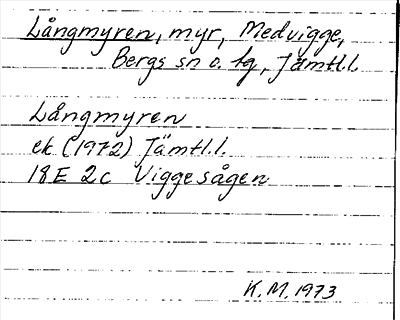 Långmyren, myr, Medvigge,
Bergs sn o. tg, Jämtl.l.
Långmyren
ek (1972) Jämtl.l.
18E 2c Viggesågen
K.M. 1973